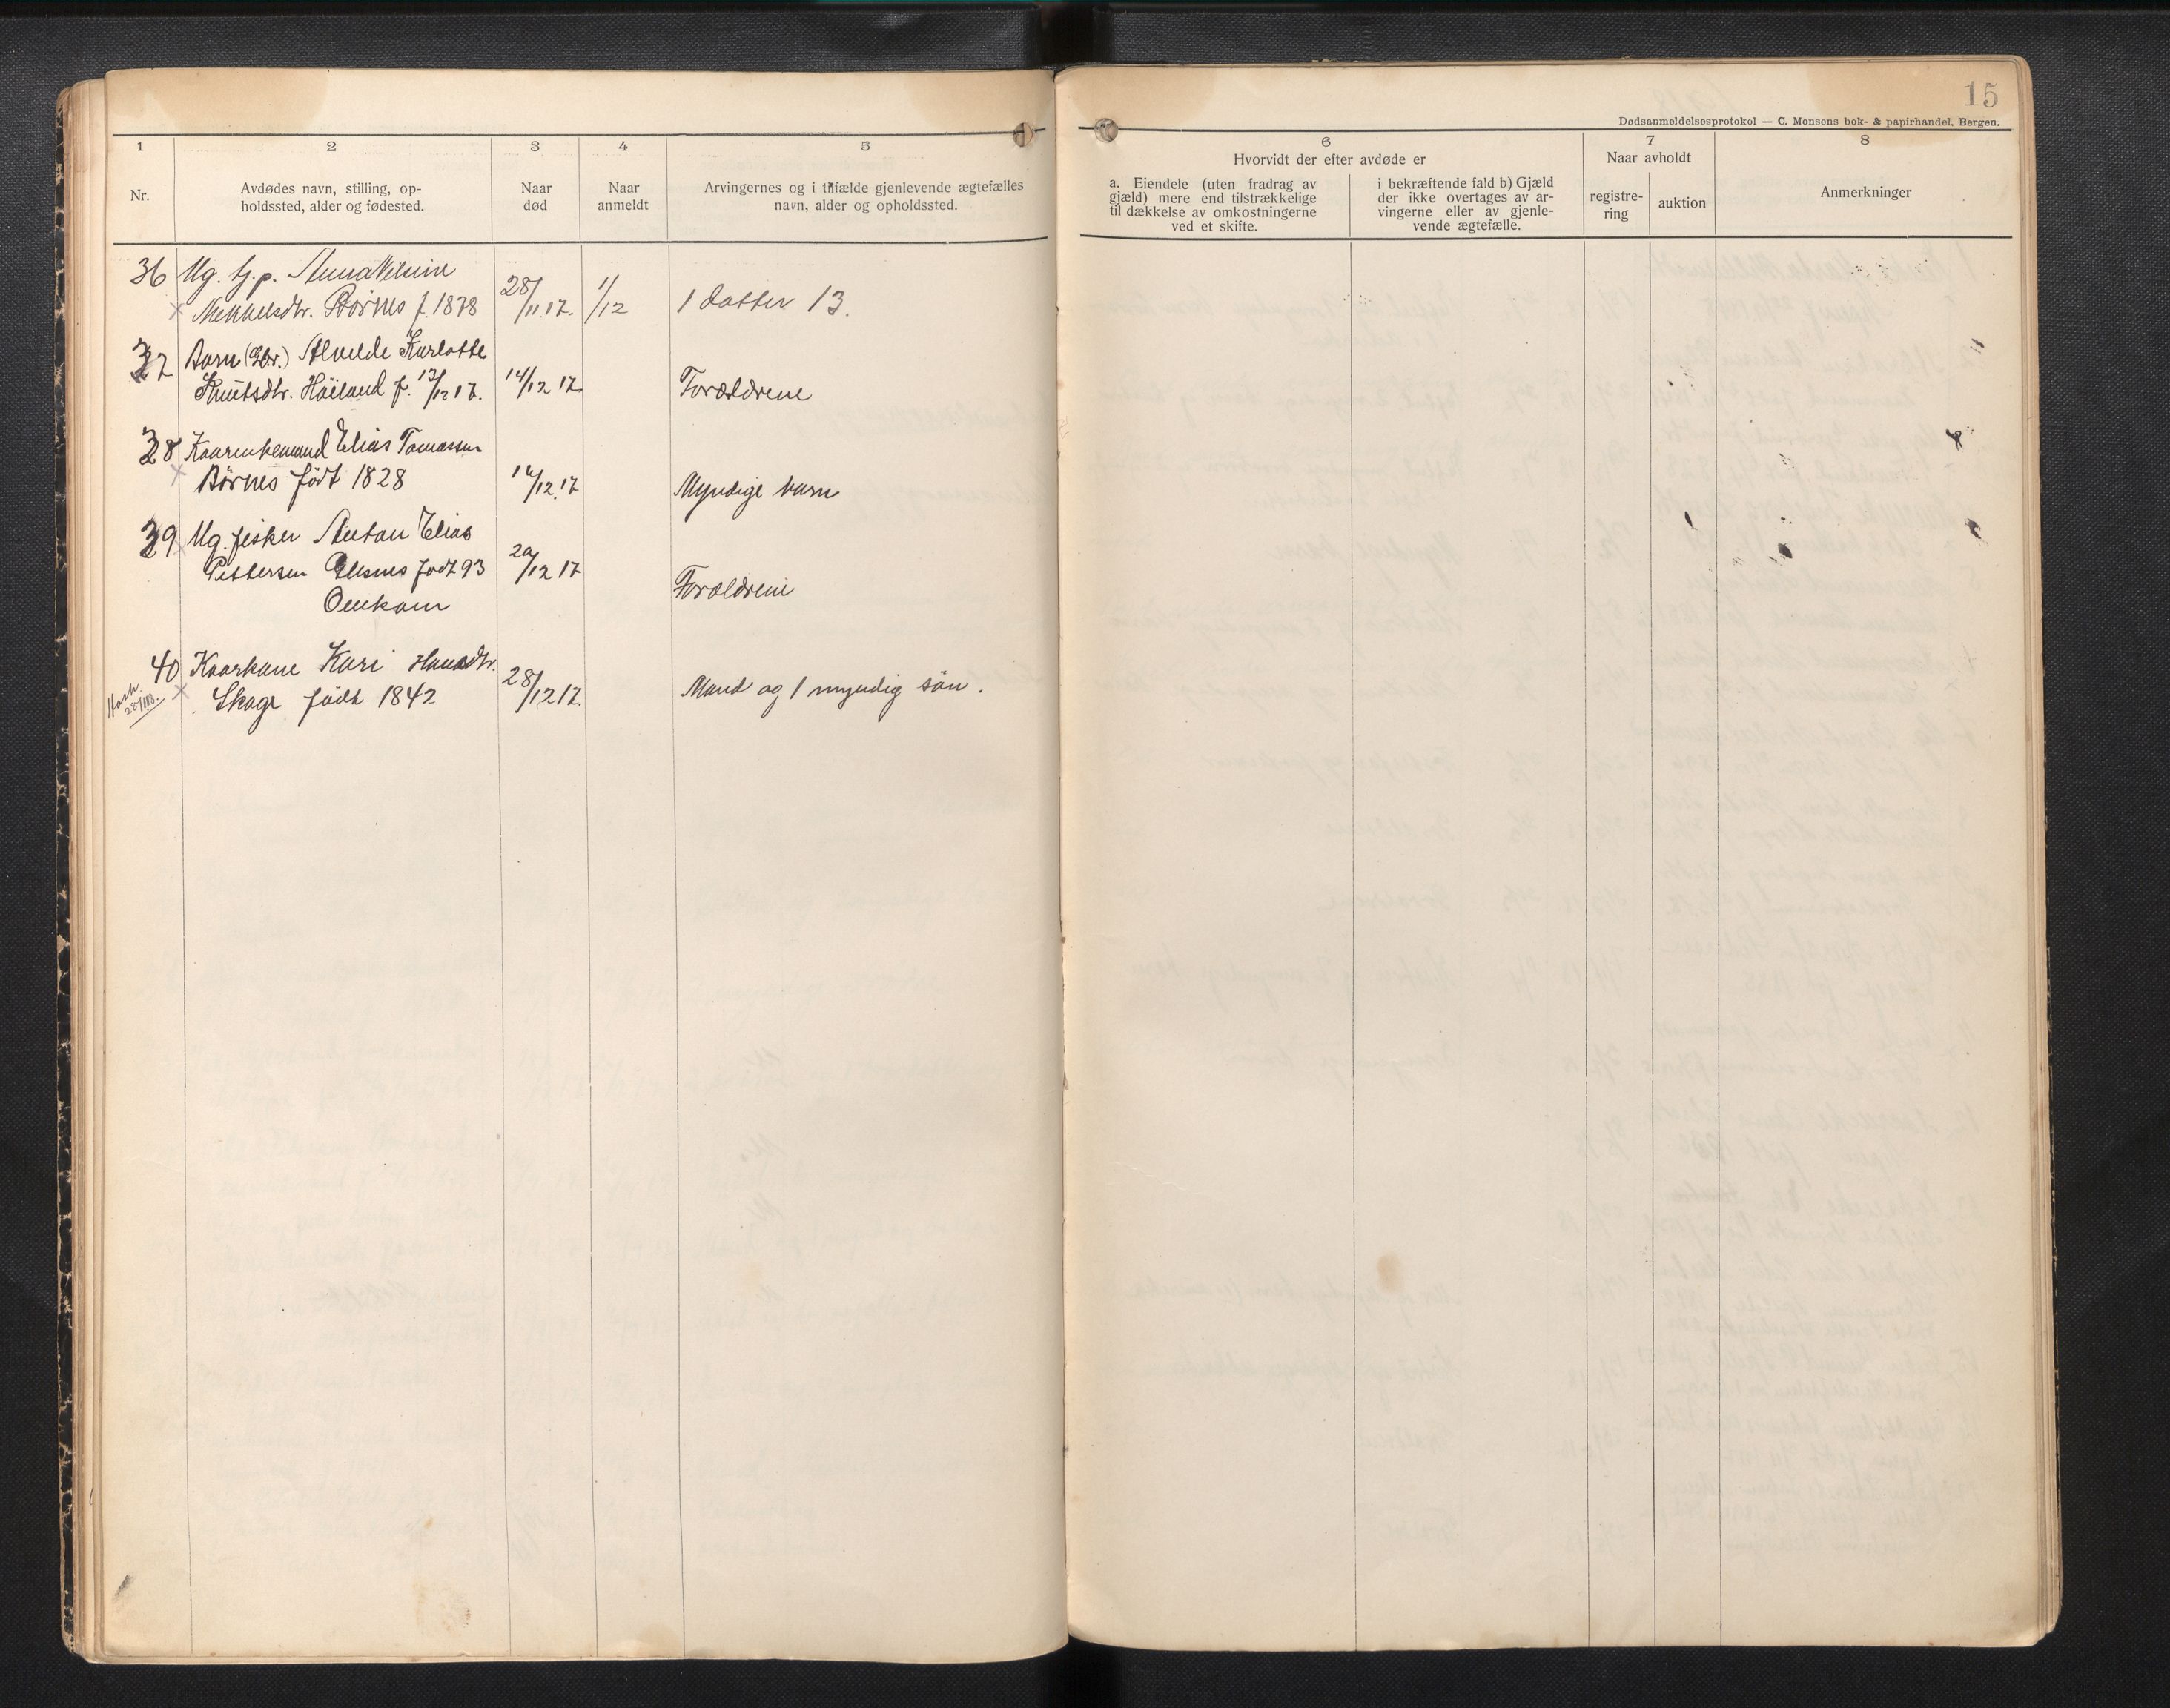 15
Dødsanmeldelsesprotokol — C. Monsens bok- & papirhandel, Bergen.
1
Nr.
2
Avdødes navn, stilling, op-
holdssted, alder og fødested.
3
Naar
død
4
Naar
anmeldt
5
Arvingernes og i tilfælde gjenlevende ægtefælles
navn, alder og opholdssted.
6
Hvorvidt der efter avdøde er
a. Eiendele (uten fradrag av
gjæld) mere end tilstrækkelige
til dækkelse av omkostningerne
ved et skifte.
i bekræftende fald b) Gjæld
der ikke overtages av ar-
vingerne eller av gjenle-
vende ægtefælle.
7
Naar avholdt
registre-
ring
auktion
8
Anmerkninger
36 Ug. tj.p. Anna
Mikkelsdtr. Börnes f. 1878 28/11 17. 1/12 1 datter 13.
37 Barn Alvilde Karlotte
Knutsdtr. Höiland f. 13/12 17. 14/12 17 Forældrene
38 Kaarenkemand Elias Tomassen
Börnes født 1828 14/12 17 Myndige barn
39 Ug. fisker Anton Elias
Pettersen født 93 20/12 17
Omkom Forældrene
40 Kaarkone Kari Hansdtr.
Skage födt 1842 28/12 17. Mand og 1 myndig sön.